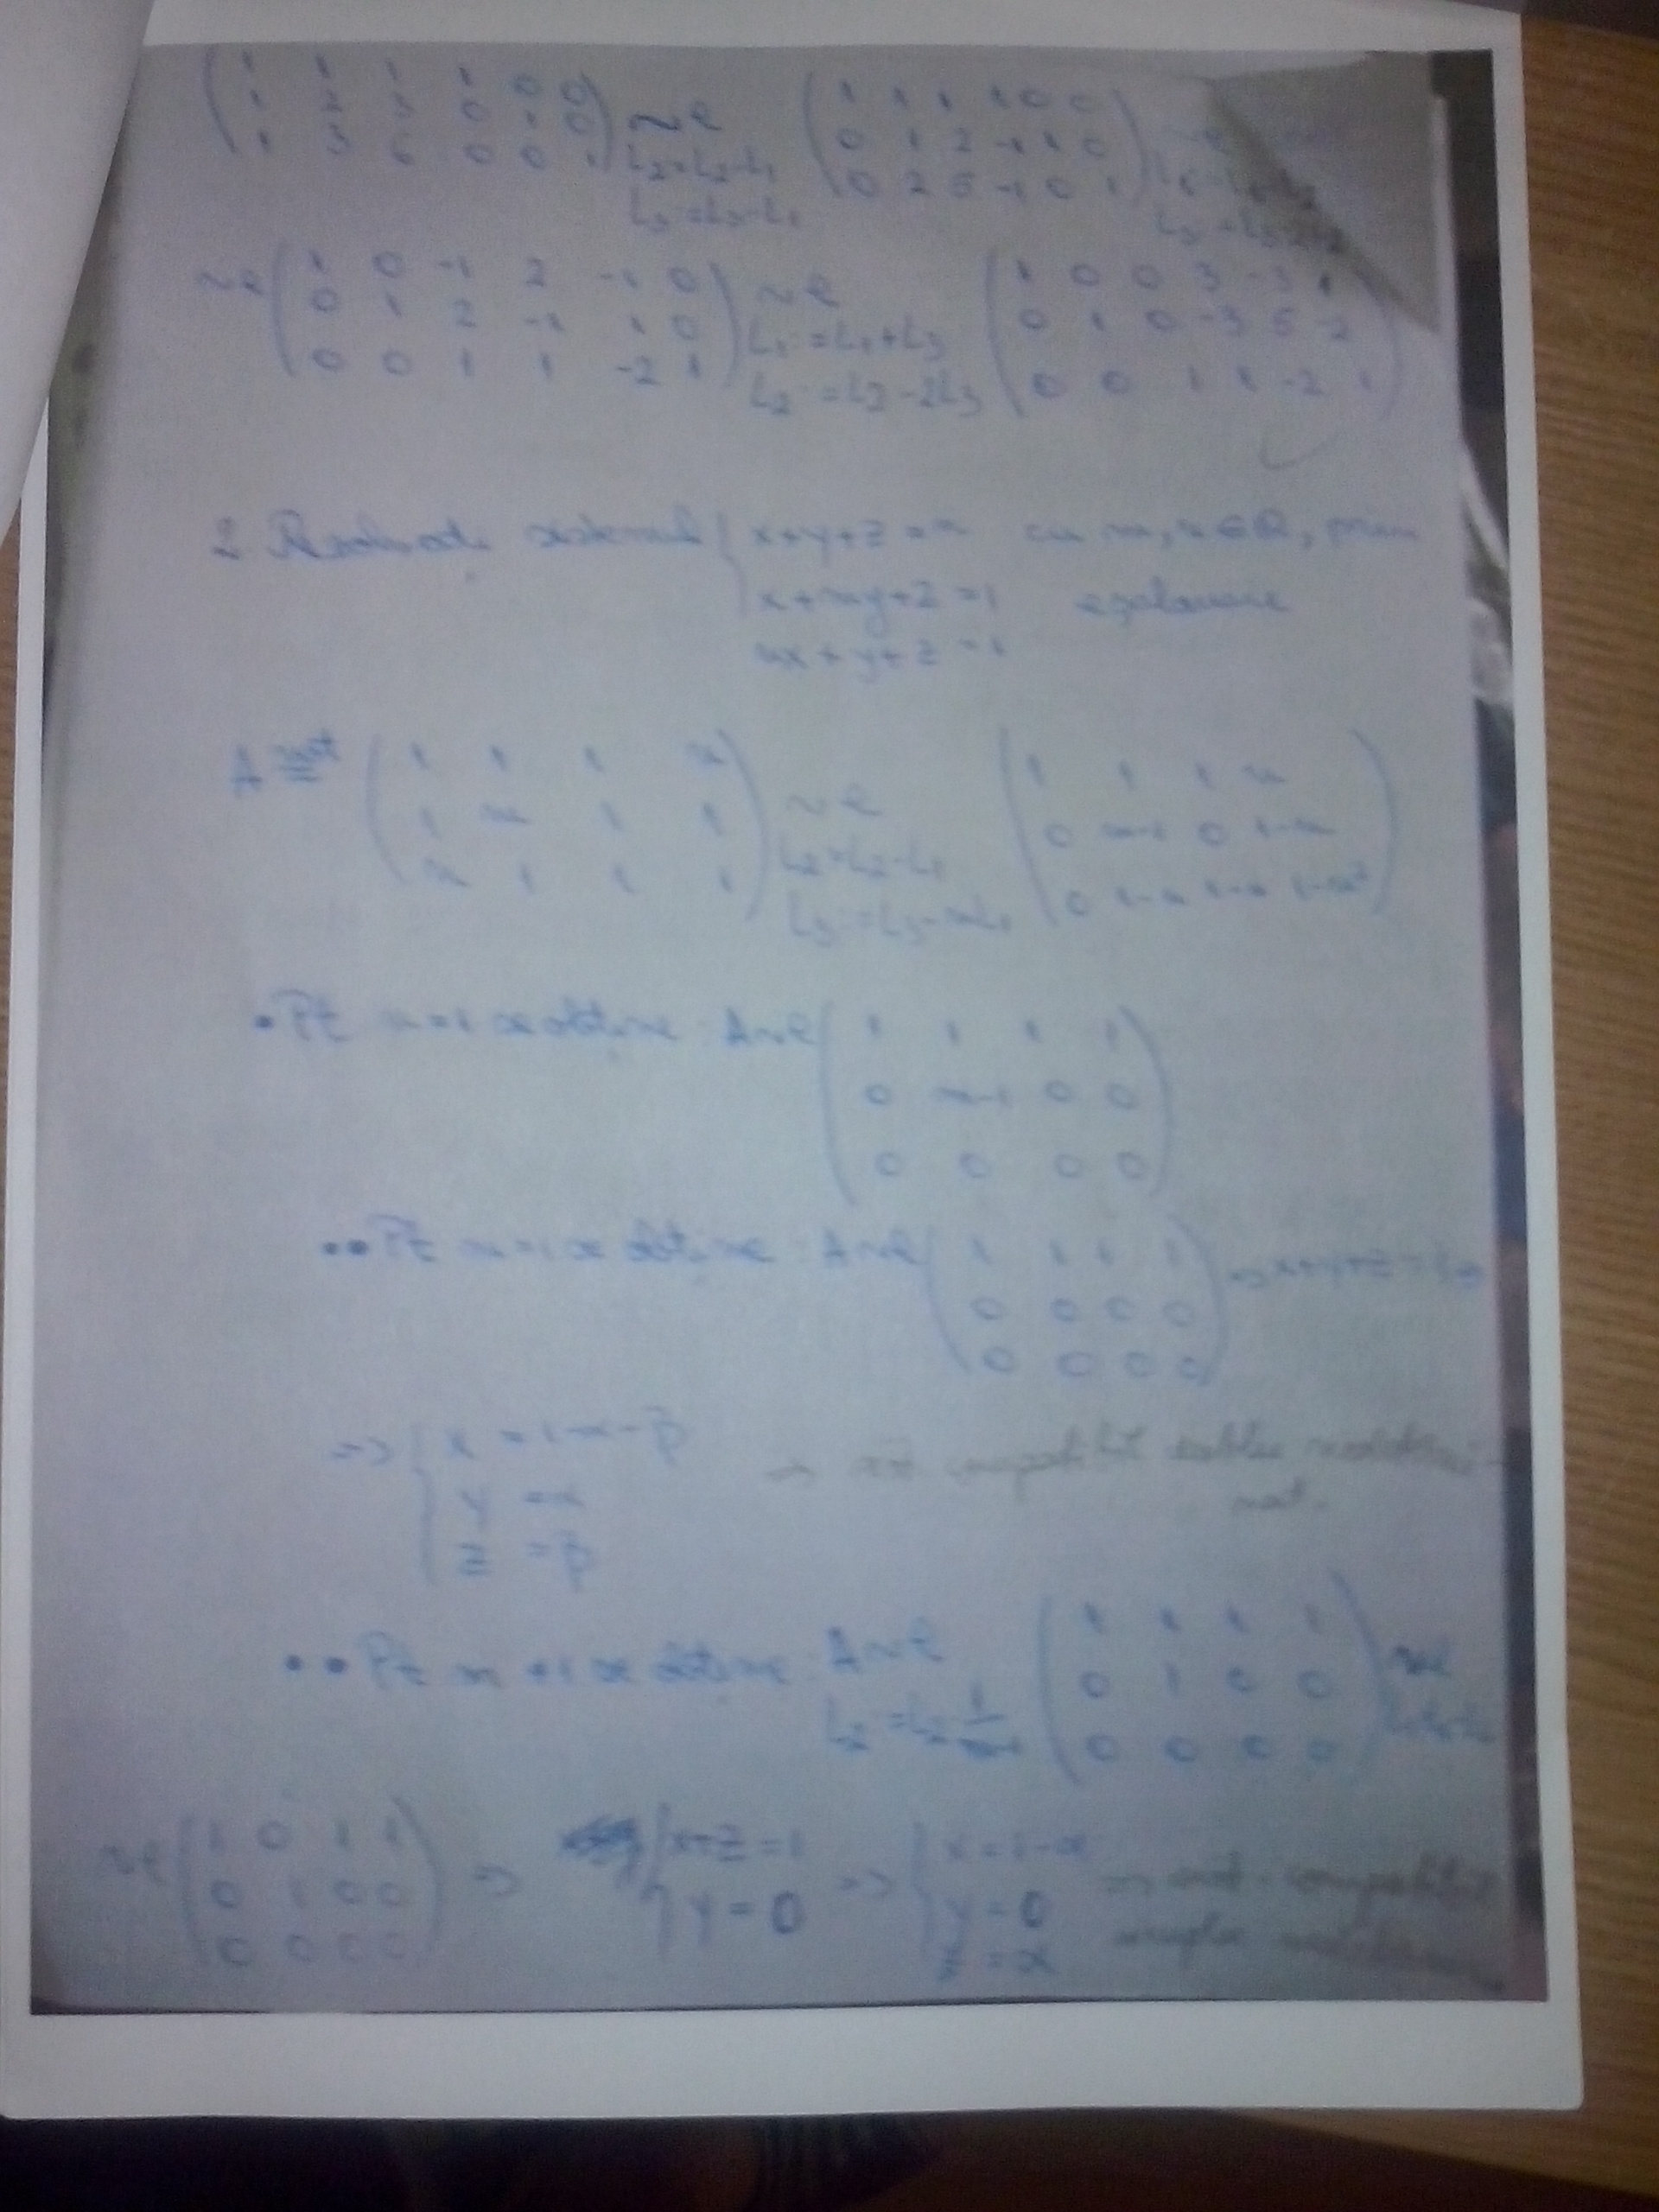 1 1 1 1 0 0
1 2 3 0 1 0
1 3 6 0 0 1
~e
L2=L2-L1
L3=L3-L1
1 1 1 1 0 0
0 1 2 -1 1 0
0 2 5 -1 0 1
~e
1 0 -1 2 -1 0
0 1 2 -1 1 0
0 0 1 1 -2 1
~e
L1=L1+L3
L2=L2-2L3
1 0 0 3 -3 1
0 1 0 -3 5 -2
0 0 1 1 -2 1
2 Rezolvați sistemul x+y+z=n cu m,n∈R, prin
x+my+z=1 egalonare
nx+y+z=1
A not
1 1 1 n
1 m 1 1
n 1 1 1
~e
L2=L2-L1
L3=L3-nL1
1 1 1 n
0 m-1 0 1-n
0 1-n 1-n 1-n²
• Pt n=1 se obține A~e
1 1 1 1
0 m-1 0 0
0 0 0 0
•• Pt m=1 se obține A~e
1 1 1 1
0 0 0 0
0 0 0 0
=> x+y+z=1 =>
=> x =1-α-β
y =α
z =β
=> compatibil dublu
•• Pt m≠1 se obține A~e
L2=L2 1/m-1
1 1 1 1
0 1 0 0
0 0 0 0
~e
~e
1 0 1 1
0 1 0 0
0 0 0 0
=> x+z=1
y=0
=> x=1-α
y=0
z=α
=> compatibil
simplu